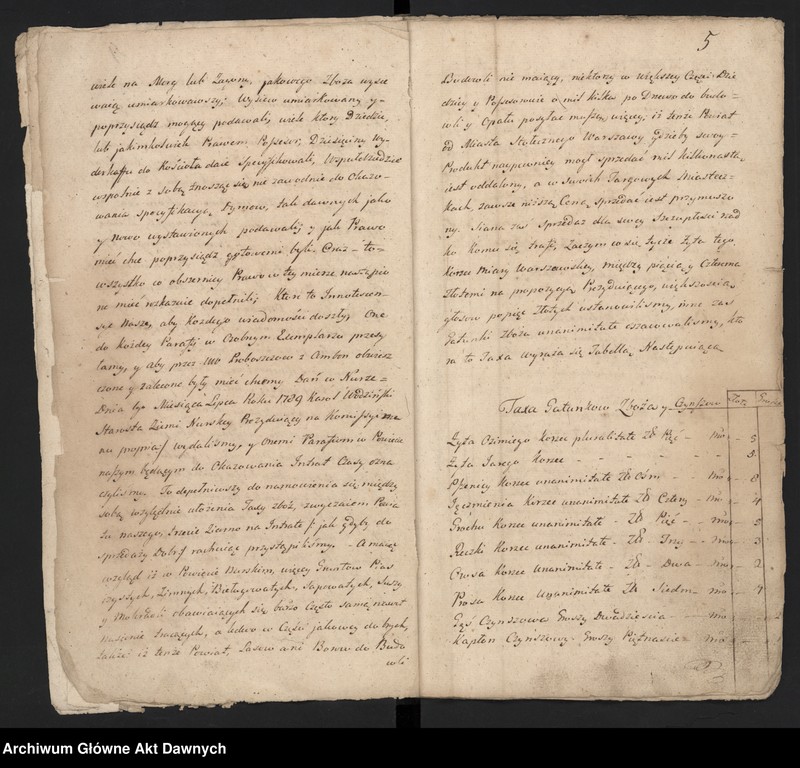 wiele na Morg lub Zagony, jakowego Zboża wysie
waią umiarkowawszy; Wysiew umiarkowany y
poprzysiądz mogący podawali, wiele ktory Dziedzic,
lub jakimkolwiek Prawem Possessor, Dziesięciny Wy-
derkaffu do Kościoła daie Specyfikowali, Wspułdziedzice
wspolnie z sobą znosząc się nie zawodnie do Okazo-
wania specyfikacyą, Dymow, tak dawnych jako
y nowo wystawionych podawali; y jak Prawo
mieć chce poprzysiądz gotowemi byli. Oraz to-
wszystko co obszerniey Prawo w tey mierze naszapio
ne mieć rozkazuie dopełnili; Ktory to Innotescen-
se Nasze, aby Każdego wiadomości doszły, One
do każdey Parafij w Osobnym Exemplarzu przesy
łamy, y aby przez Ww Proboszczow z Ambon obwiesz
czone y zalecone były mieć chcemy Dan w Nurze
Dnia Miesiąca Lipca Roku 1789 Karol Wodziński
Starosta Ziemi Nurskiey Prezyduiący na Kommissyi mp
wydalismy, y Onemi Parafiom w Powiecie
naszym będącym do Okazowania Intrat Czasy ozna
czylismy. To dopełniwszy do namowienia się między
sobą względnie ułożenia Taxy zboż, zwyczaiem Powia
tu naszego, Trzecie Ziarno na Intratę jak gdyby do
sprzedaży Dobr rachuiąc przystąpilismy. A maiąc
wzgląd iż w Powiecie Nurskim, więcey Gruntow Pias
czystych, Zimnych, Bielugowatych, Sapowatych, Suszy
y Mokradli obawiaiących się bardzo często samę nawet
nasienie zwracaiących, a ledwo w Części jakowey dobrych,
tudzież iż tenże Powiat, Lasow ani Borow do Budo
wli
5
Budowli nie maiący, niektorzy w większey Części Dzie
dzicy y Possessorowie o mil kilka po Drzewo do budo-
wli y Opału posyłać muszą, więcey, iż tenże Powiat
od Miasta Stołecznego Warszawy gdzieby swoy
Produkt naypewniey mogł sprzedać mil kilkanaście
iest oddalony, a w swoich Targowych Miastecz-
kach, zawsze niższą Ceną Sprzedać iest przymuszo
ny. Siana zaś Sprzedaż dla swey Szczupłości rzad
ko komu się trafi, Zaczym co się tycze Żyta tego
Korzec Miary Warszawskiey, między pięcią y Czterema
Złotemi na propozycyą Prezyduiącego, większością
głosow po pięć Złotych ustanowilismy, inne zaś
Gatunki Zboża unanimitate oszacowalismy, kto
ra to Taxa wyraża się Tabellą Następuiącą
Taxa Gatunkow Zboża y Czynszow Złote Grosze
Żyta Ozimiego Korzec pluralitate Zł Pięć - 5
Żyta Jarego Korzec - - - - 3
Pszenicy Korzec unanimitate Zł Ośm - 8
Jęczmienia Korzec unanimitate Zł Cztery - 4
Grochu Korzec unanimitate - Zł Pięć - 5
Reczki Korzec unanimitate - Zł - Trzy - 3
Owsa Korzec unanimitate - Zł - Dwa - 2
Prosa Korzec unanimitate Zł Siedm - 7
Gęś Czynszowa Groszy Dwadzieścia
Kapłon Czynszowy Groszy Piętnaście
Archiwum Główne Akt Dawnych